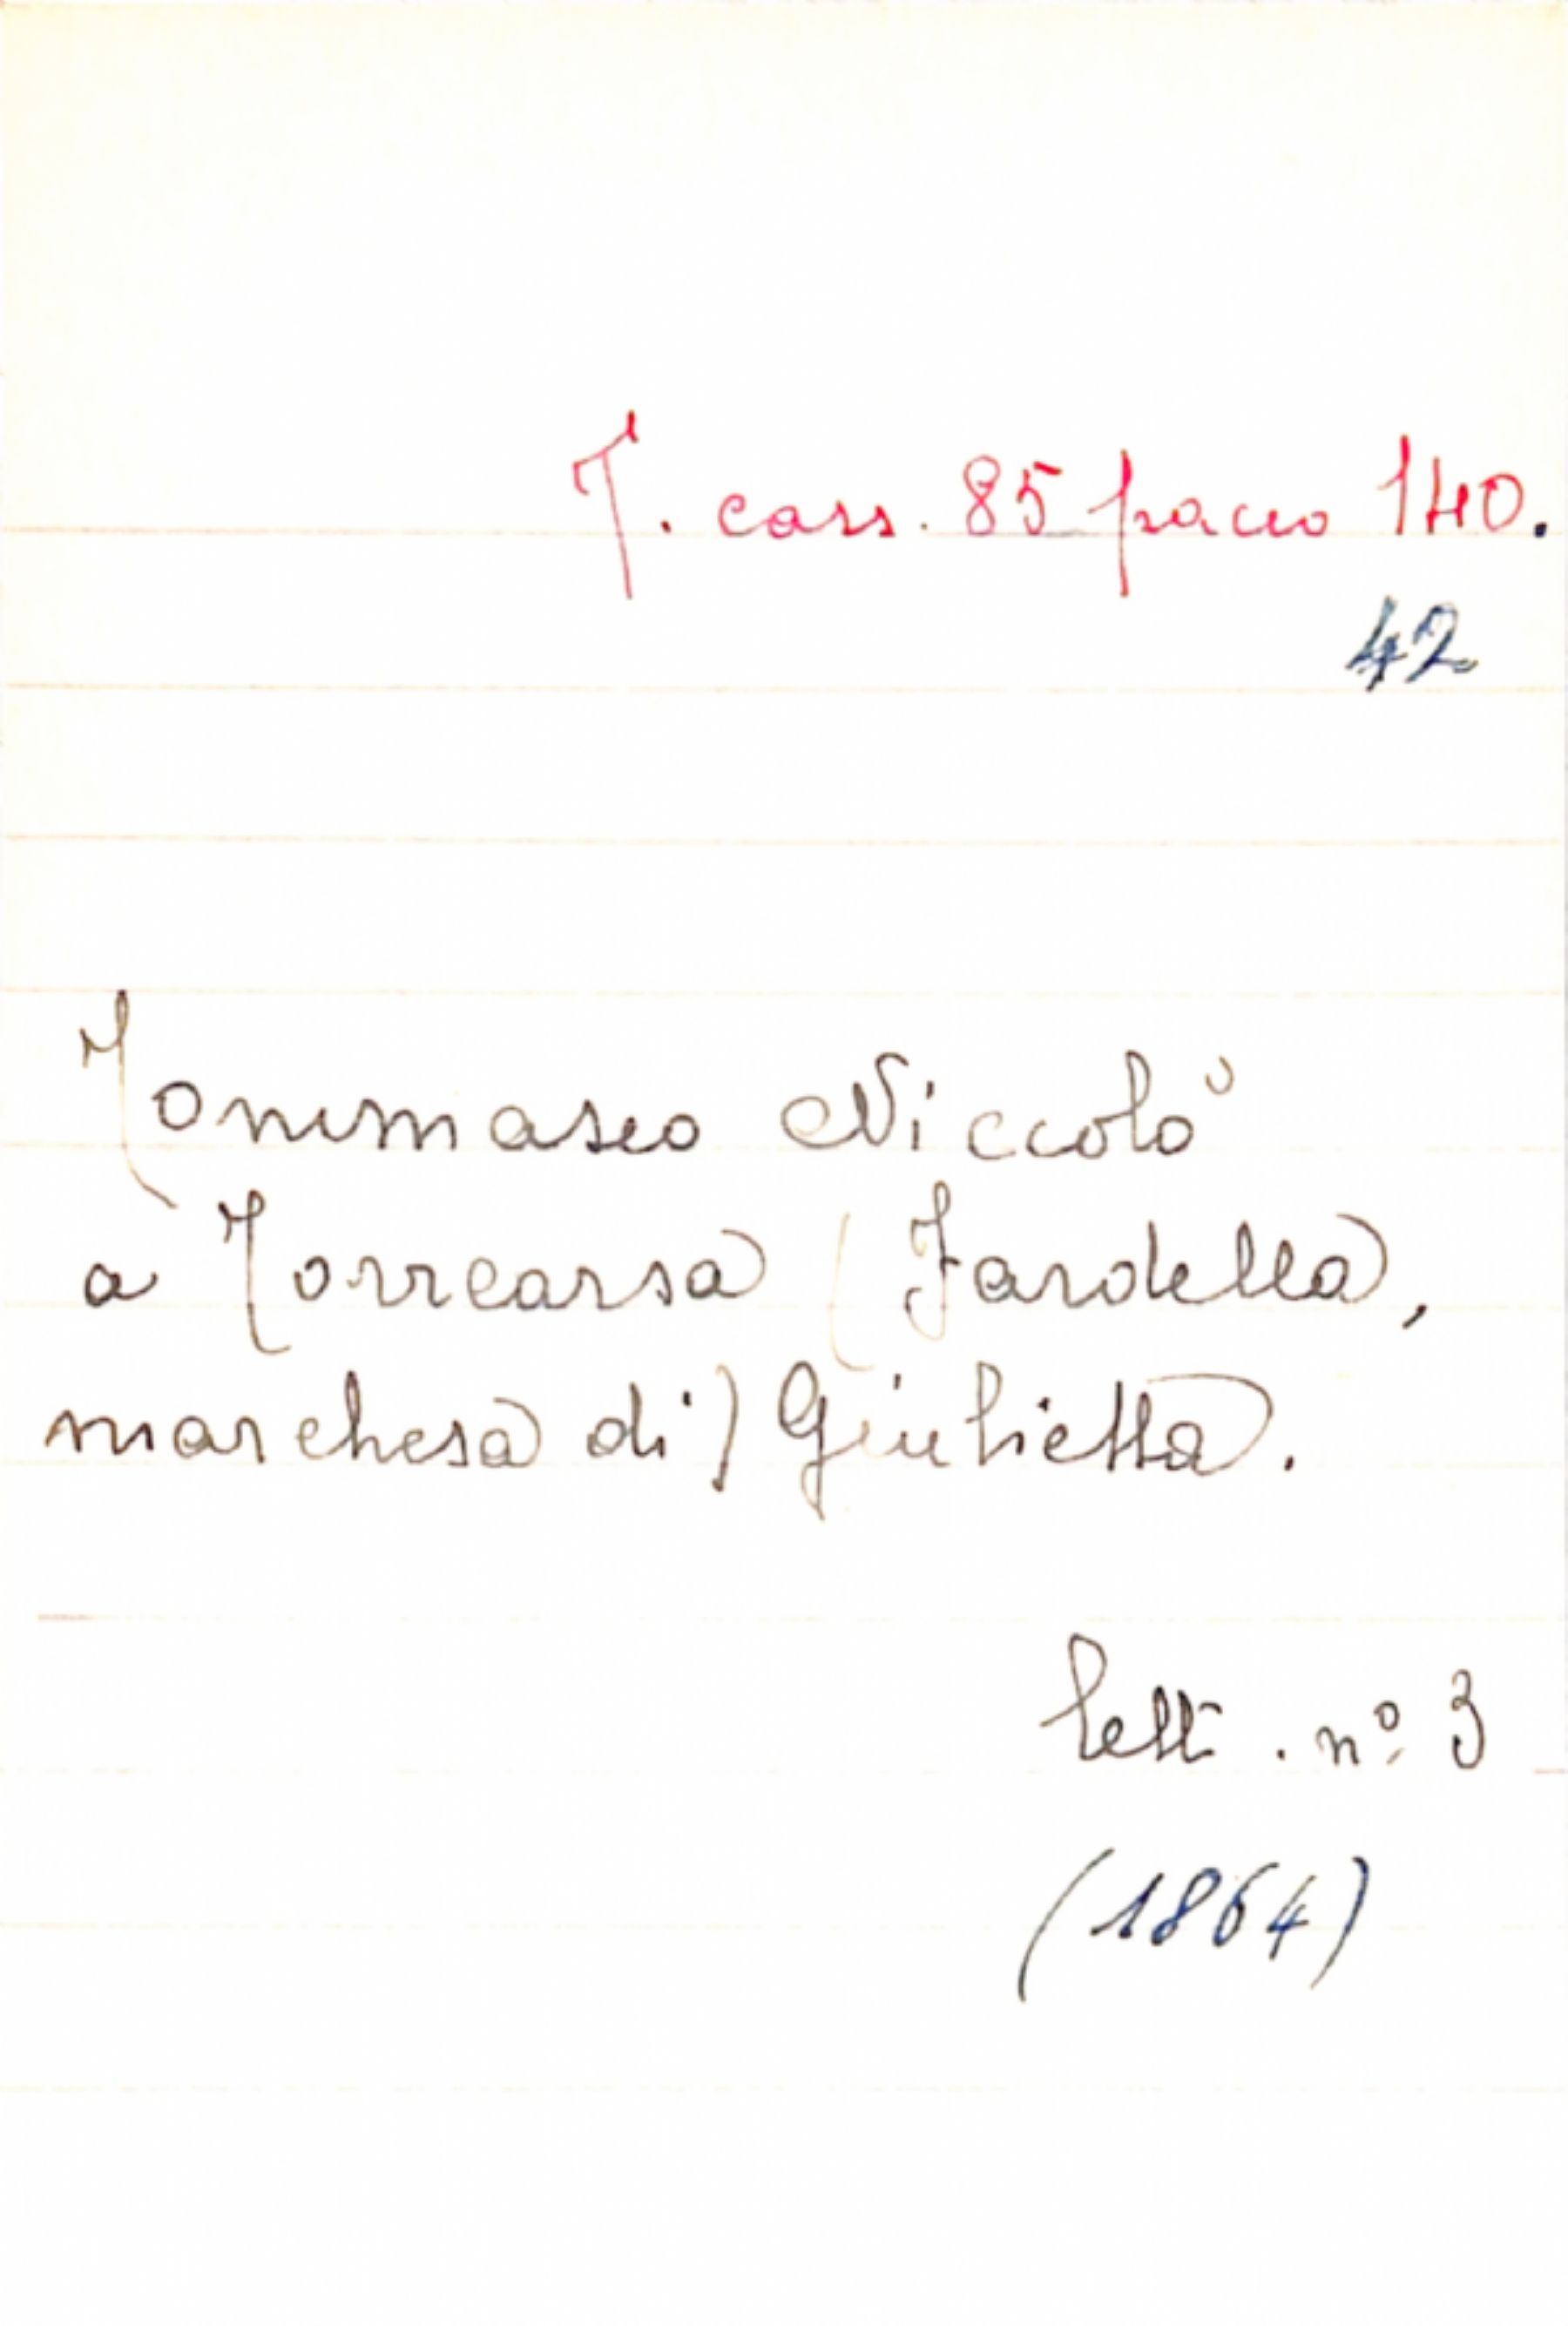 T. cass. 85 pacco 140.
42
Tommaseo Niccolò
a Torrearsa (Fardella,
marchesa di) Giulietta.
lett. n° 3
(1864)